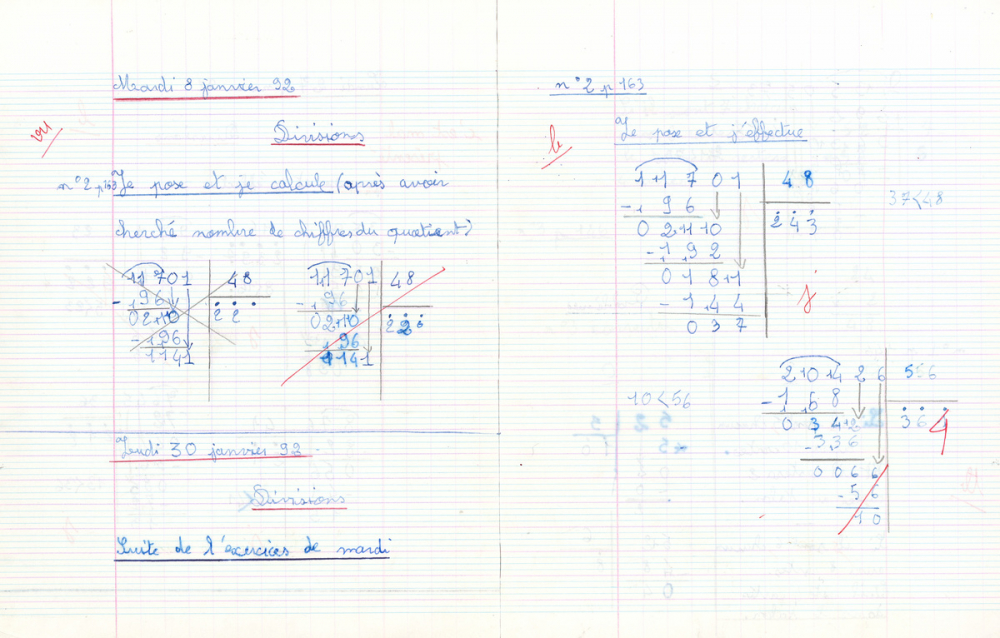 Mardi 8 janvier 92
vu
Divisions
n°2 p 163 Je pose et je calcule (après avoir
cherché nombre de chiffres du quotient)
11701 48
- 96 22
0210
- 196
1141
11701 48
- 96 22
0210
- 196
1141
Jeudi 30 janvier 92
Divisions
Suite de l'éxercices de mardi
n°2 p 163
b
Je pose et j'éffectue
1+1701 48
- 96 243
02+110 37<48
- 192
018+1
- 144
037
j
2+10+426 56
- 168 364
034+2 10<56
- 336
0066
- 56
10